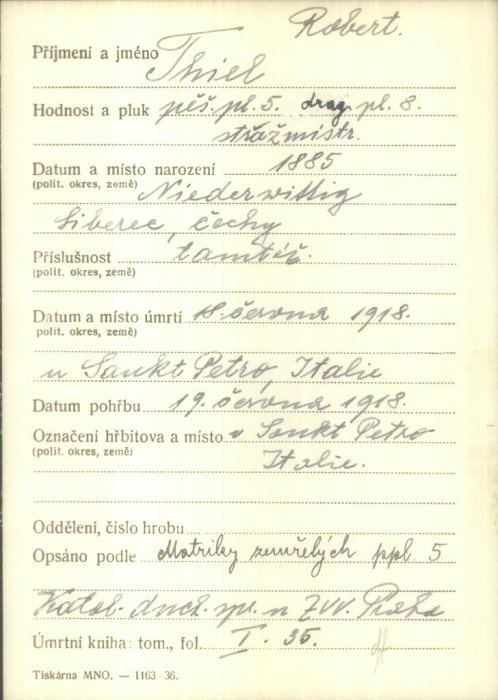 Robert.
Příjmení a jméno Thiel
Hodnost a pluk pěš. pl. 5. drag. pl. 8.
strážmistr.
Datum a místo narození 1885
(polit. okres, země) Niederwittig
Liberec, čechy
Příslušnost tamtéž.
(polit. okres, země)
Datum a místo úmrtí 18. června 1918.
polit. okres, země)
u Sankt Petro, Italie
Datum pohřbu 19. června 1918.
Označení hřbitova a místo v Sankt Petro
(polit. okres, země) Italie.
Oddělení, číslo hrobu
Opsáno podle Matriky zemřelých ppl. 5
Katol. duch. spr. u ZVV. Praha
Úmrtní kniha: tom., fol. I. 35.
Tiskárna MNO. — 1163-36.